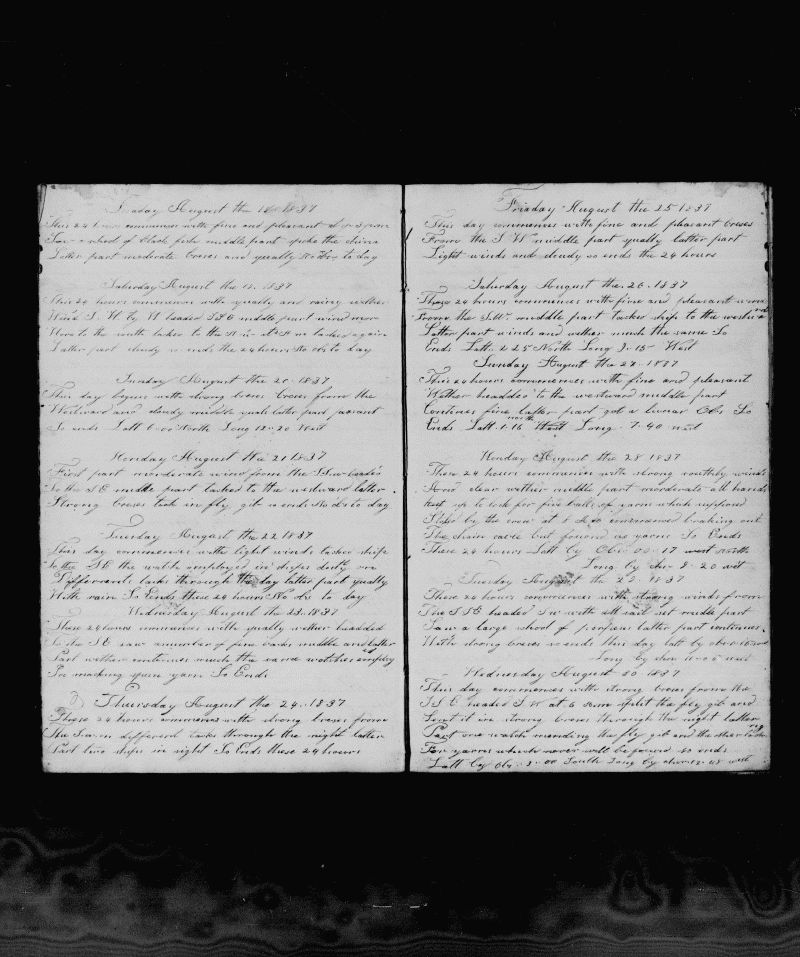 Friday August the 18 1837
This 24 hours commences with fine and pleasant at 3
Saw a school of black fish middle part spoke the china
Latter part moderate breses and squally No obs to day
Saturday August the 19. 1837
This 24 hours commences with squally and rainy wether
Wind S. W. by W headed SSE middle part wind more
Were to the south tacked to the N W at tacked again
Latter part cloudy so ends the 24 hours No obs to day
Sunday August the 20. 1837
This day begins with strong breses from the
Westward and cloudy middle squals latter part pleasant
So ends Latt 6-00 North Long 12-20 West
Monday August the 21 1837
First part morderate wind from the headed
To the S E middle part tacked to the westward latter
Strong breses took in fly gib so ends No obs to day
Tuesday August the 22 1837
This day commences with light winds tacked ships
to the S E the watch employed in ships duty on
Differends tacks through the day latter part squally
With rain So Ends these 24 hours No obs to day
Wednesday August the 23. 1837
These 24 hours commences with squally wether headded
to the S E saw a number of fine backs middle and latter
Part wether continues much the same watches employed
In macking spun yarn So Ends
Thursday August the 24. 1837
These 24 hours commences with strong breses from
the on differend tacks through the night latter
Part two ships in sight So Ends these 24 hours
Friaday August the 25 1837
This day commences with fine and pleasant breses
From the S W middle part squally latter part
Light winds and cloudy so ends the 24 hours
Saturday August the. 26. 1837
These 24 hours commences with fine and pleasant winds
From the S.W. middle part tacked ship to the westward
Latter part winds and wether much the same So
Ends Latt. 2 25 North Long 9-15 West
Sunday August the 27. 1837
This 24 hours commences with fine and pleasant
Wether headded to the westward middle part
Contines fine latter part got a lunar Obs So
Ends Latt 1-16 north Long. 7-40 west
Monday August the 28 1837
These 24 hours commences with strong southly winds
And clear wether middle part morderate all hands
kept up to look for five balls of yarn which supposed
by the crew at 8 braking out
The chain cable but found no yarns So Ends
These 24 hours Latt by Obs. 00-17 north
Long by chr 8-20 west
Tuesday August the 29. 1837
These 24 hours commences with strong winds from
The S S E headed S W with all sail set middle part
Saw a large school of porpuses latter part continues
With strong breses so ends this day latt by obs
Long by chr 11-05 west
Wednesday August 30 1837
This day commences with strong breses from the
S S E headed S W at 6 split the fly gib and
Sent it in strong breses through the night latter
Part one watch mending the fly gib and the other looking
For yarns which never will be found so ends
Latt by Obs. 3-00 South Long by chr west